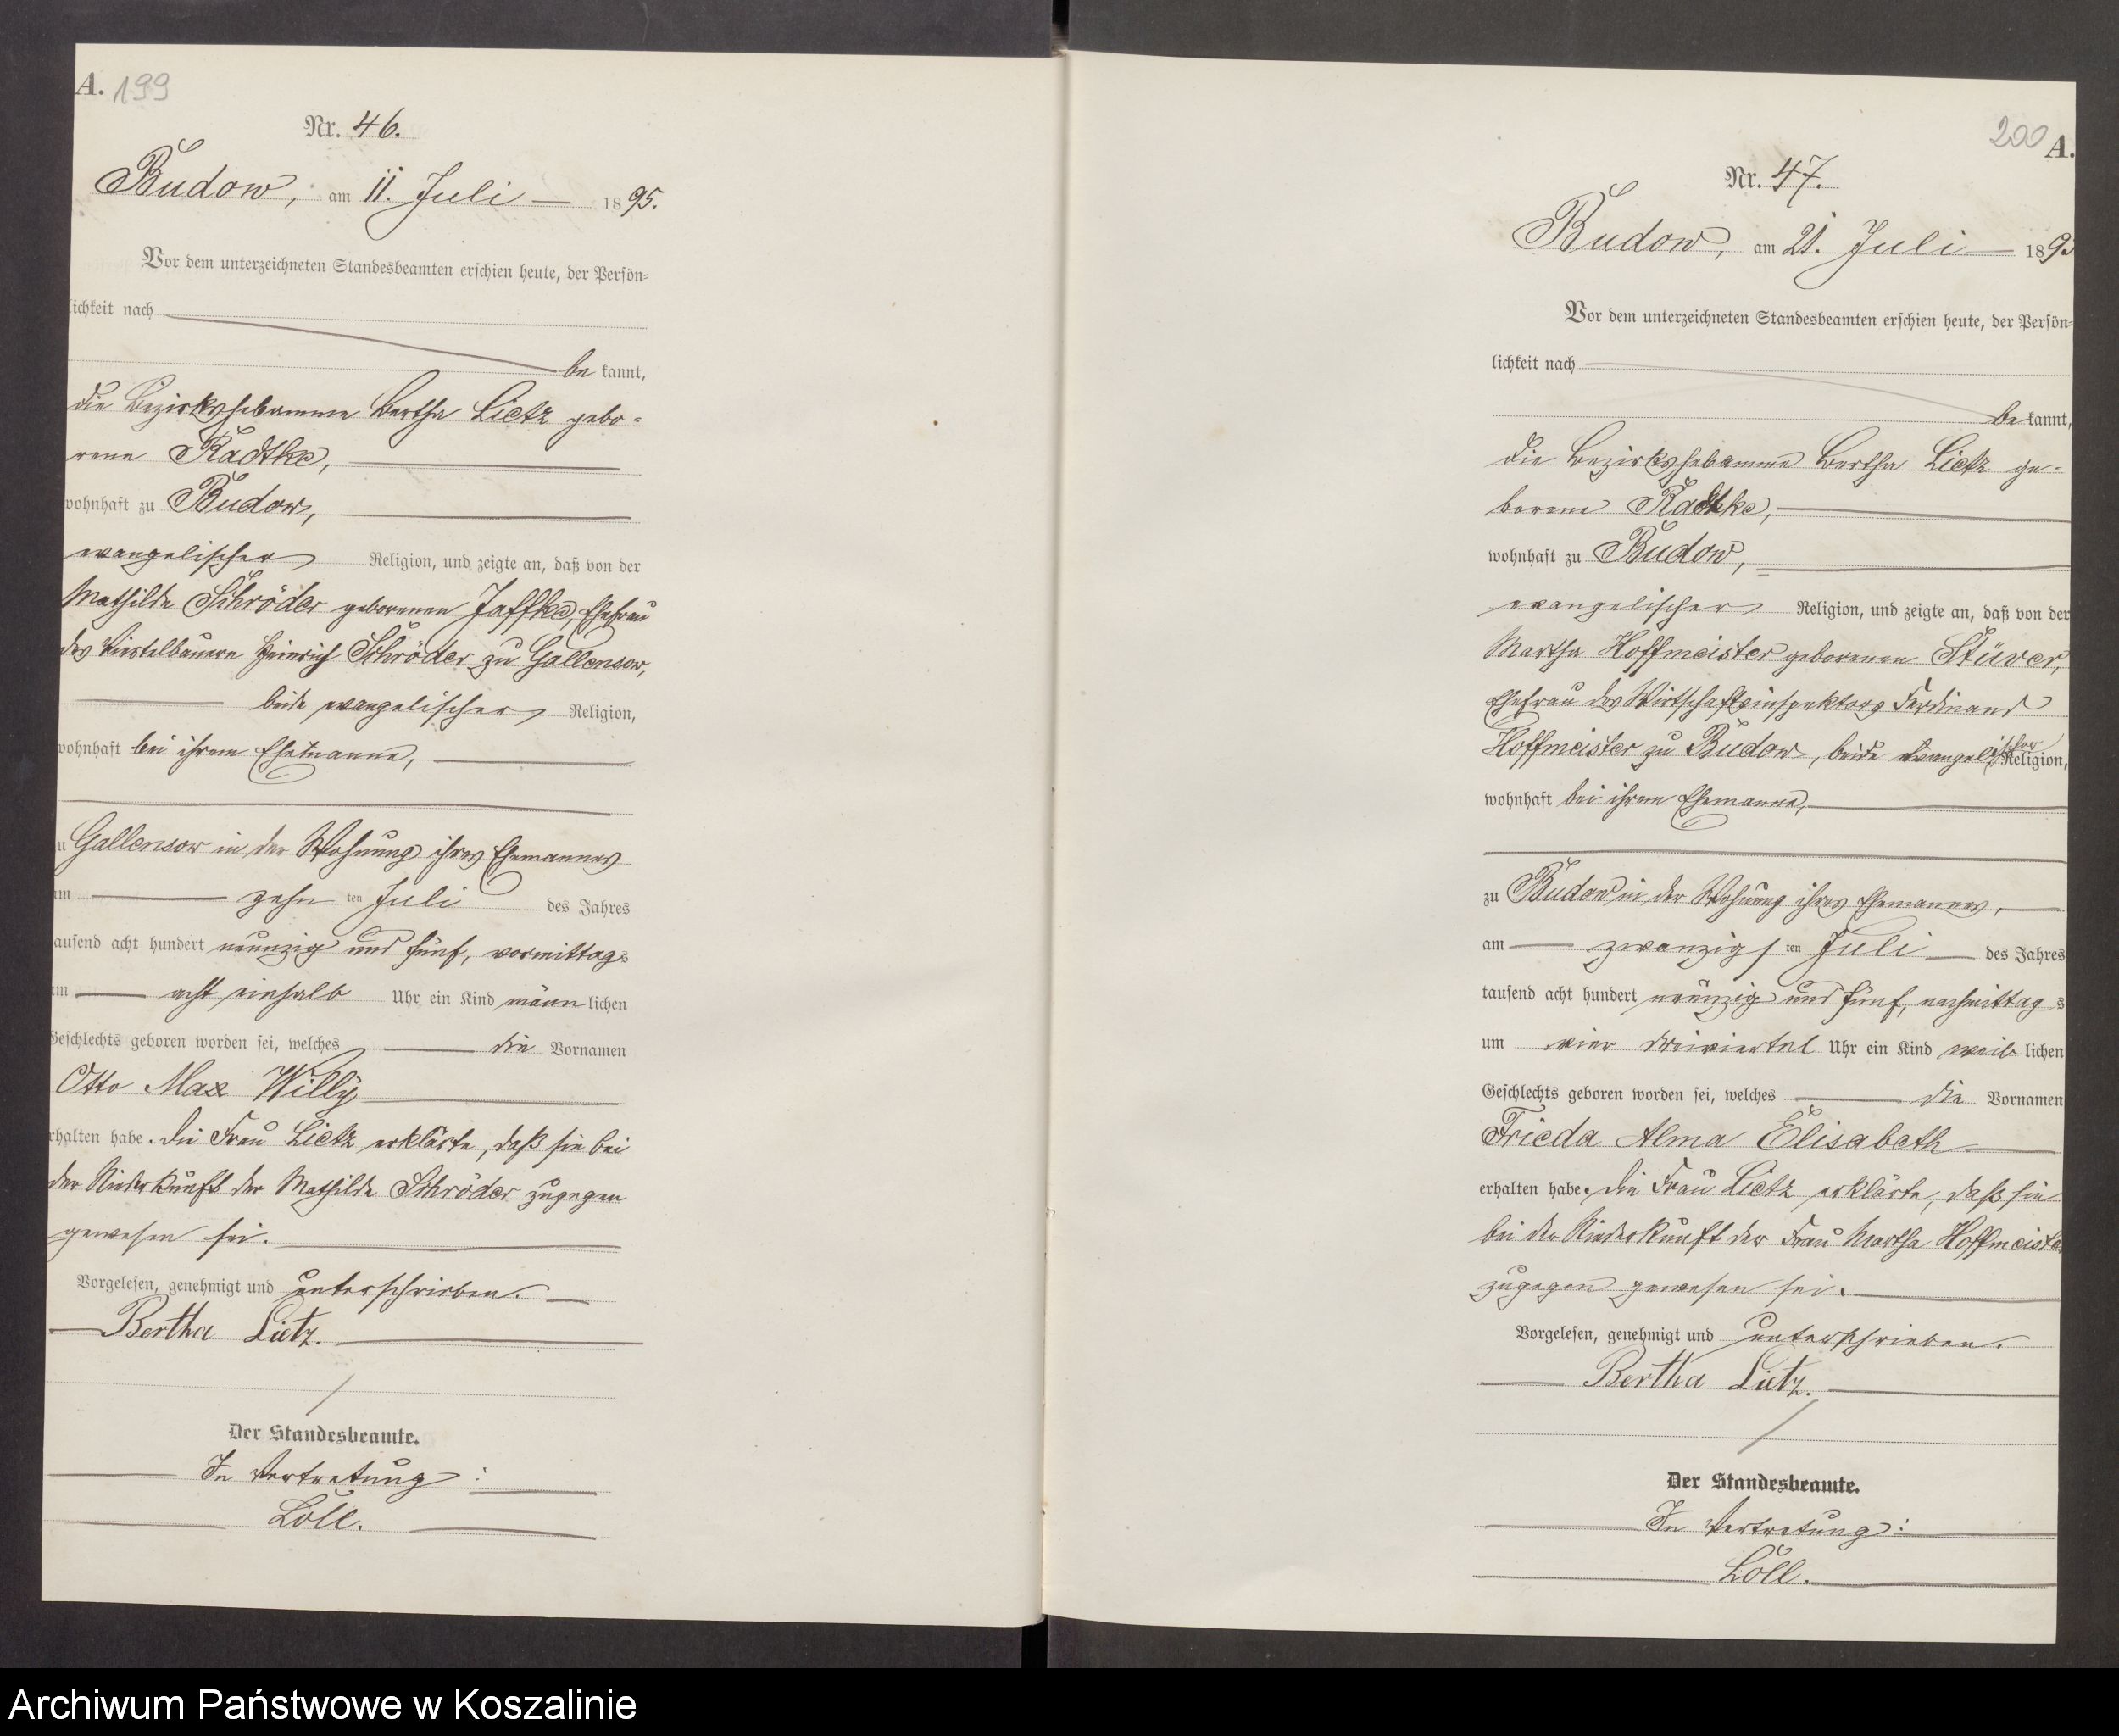 A. 199
Nr. 46.
Budow, am 11. Juli 1895.
Vor dem unterzeichneten Standesbeamten erschien heute, der Persön-
lichkeit nach
bekannt,
die Bezirkshebamme Bertha Lietz gebo-
rene Radtke,
wohnhaft zu Budow,
evangelischer Religion, und zeigte an, daß von der
Mathilde Schröder geborenen Jaffke, Ehefrau
des Viertelbauern Heinrich Schröder zu Gallensow,
beide evangelischer Religion,
wohnhaft bei ihrem Ehemanne,
u Gallensow in der Wohnung ihres Ehemannes
am zehnten Juli des Jahres
tausend acht hundert neunzig und fünf, vormittags
um acht einhalb Uhr ein Kind männlichen
Geschlechts geboren worden sei, welches die Vornamen
Otto Max Willy
erhalten habe. Die Frau Lietz erklärte, daß sie bei
der Niederkunft der Mathilde Schröder zugegen
gewesen sei.
Vorgelesen, genehmigt und unterschrieben.
Bertha Lietz.
Der Standesbeamte.
In Vertretung:
Löll.
200 A.
Nr. 47.
Budow, am 21. Juli 1895
Vor dem unterzeichneten Standesbeamten erschien heute, der Persön-
lichkeit nach
bekannt,
die Bezirkshebamme Bertha Lietz ge-
borene Radtke,
wohnhaft zu Budow,
evangelischer Religion, und zeigte an, daß von der
Martha Hoffmeister geborenen Stüwer,
Ehefrau des Wirtschaftsinspektors Ferdinand
Hoffmeister zu Budow, beide evangelischer Religion,
wohnhaft bei ihrem Ehemanne,
zu Budow in der Wohnung ihres Ehemannes,
am zwanzigsten Juli des Jahres
tausend acht hundert neunzig und fünf, nachmittags
um vier dreiviertel Uhr ein Kind weiblichen
Geschlechts geboren worden sei, welches die Vornamen
Frieda Alma Elisabeth
erhalten habe. Die Frau Lietz erklärte, daß sie
bei der Niederkunft der Frau Martha Hoffmeister
zugegen gewesen sei.
Vorgelesen, genehmigt und unterschrieben.
Bertha Lietz.
Der Standesbeamte.
In Vertretung:
Löll.
Archiwum Państwowe w Koszalinie